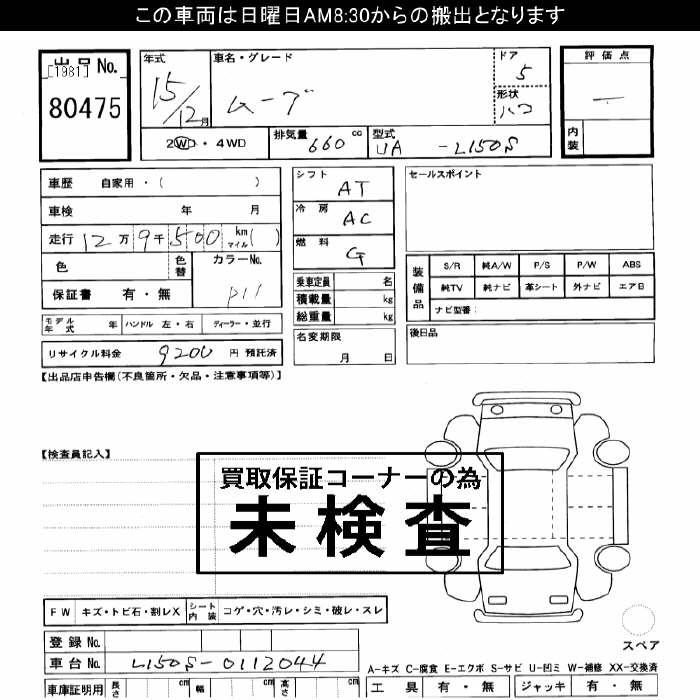 この車両は日曜日AM8:30からの搬出となります
出品 No.
[1981]
80475
年式 15/12月
車名・グレード
ムーブ
ドア 5
形状 ハコ
2WD・4WD
排気量 660 cc
型式 UA -L150S
評価点
—
内装
車歴 自家用・( )
車検 年 月
走行 12万9千500 km マイル( )
色 色替 カラーNo.
P11
保証書 有・無
モデル年式 年 ハンドル 左・右 ディーラー・並行
リサイクル料金 9200 円 預託済
シフト AT
冷房 AC
燃料 G
乗車定員 名
積載量 kg
総重量 kg
名変期限 月 日
セールスポイント
装備品 S/R 純A/W P/S P/W ABS
純TV 純ナビ 革シート 外ナビ エアB
ナビ型番:
後日品
【出品店申告欄(不良箇所・欠品・注意事項等)】
【検査員記入】
買取保証コーナーの為
未検査
FW キズ・トビ石・割レX シート内装 コゲ・穴・汚レ・シミ・破レ・スレ
登録 No.
車台 No. L150S-0112044
車庫証明用 長さ cm 幅 cm 高さ cm
スペア
A-キズ C-腐食 E-エクボ S-サビ U-凹ミ W-補修 XX-交換済
工具 有・無 ジャッキ 有・無